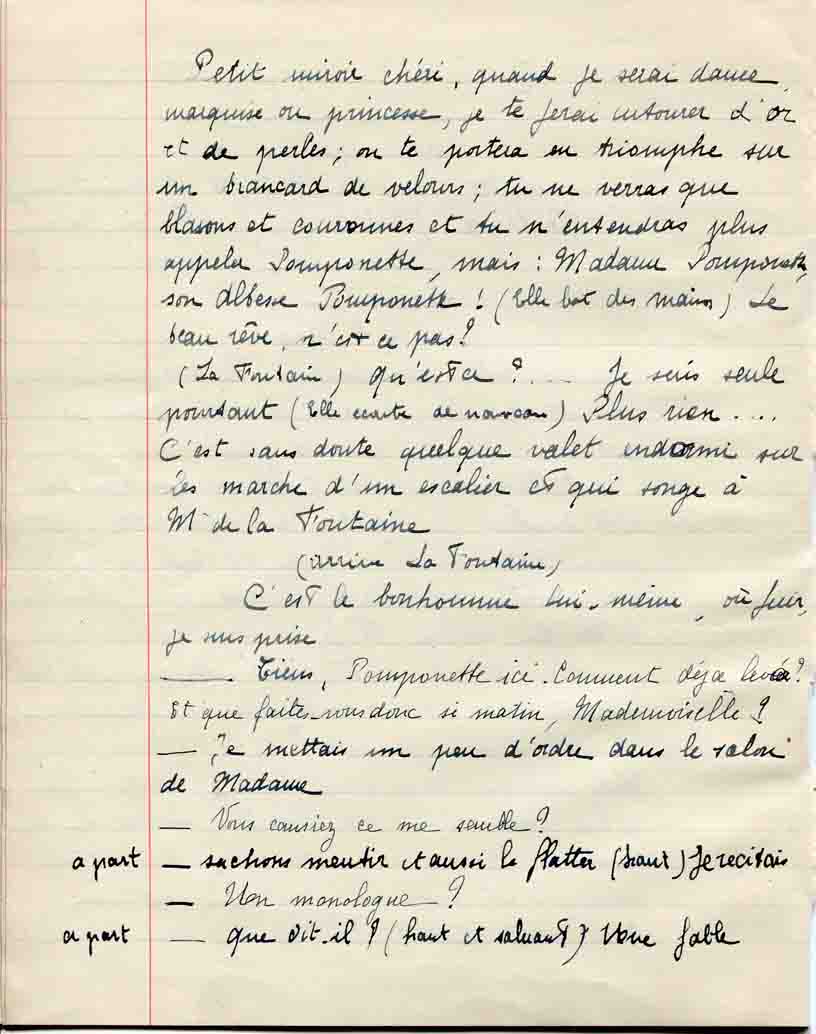 Petit miroir chéri, quand je serai dame,
marquise ou princesse, je te ferai entourer d'or
et de perles ; on te portera en triomphe sur
un brancard de velours ; tu ne verras que
blasons et couronnes et tu n'entendras plus
appeler Pomponette, mais : Madame Pomponette,
son Altesse Pomponette ! (Elle bat des mains) Le
beau rêve, n'est ce pas ?
(La Fontaine) Qu'est ce ? ... Je suis seule
pourtant (Elle écoute de nouveau) Plus rien ....
C'est sans doute quelque valet endormi sur
les marche d'un escalier et qui songe à
Mr de la Fontaine
(arrive La Fontaine)
C'est le bonhomme lui-même, où fuir,
je suis prise
— Tiens, Pomponette ici. Comment déja levée ?
Et que faites-vous donc si matin, Mademoiselle ?
— Je mettais un peu d'ordre dans le salon
de Madame
— Vous causiez ce me semble ?
a part — sachons mentir et aussi le flatter (haut) Je recitais
— Un monologue ?
a part — que dit-il ? (haut et saluant) Une fable